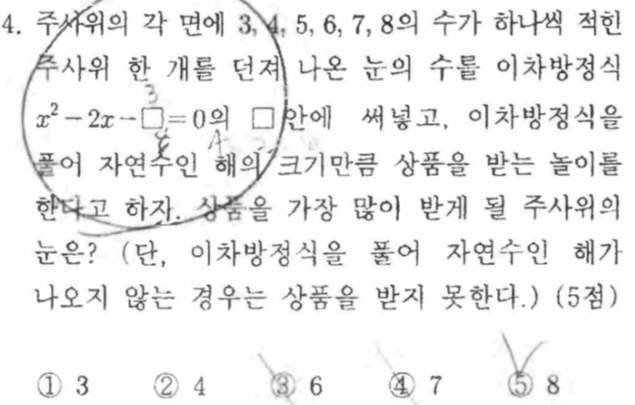 4. 주사위의 각 면에 3, 4, 5, 6, 7, 8의 수가 하나씩 적힌
주사위 한 개를 던져 나온 눈의 수를 이차방정식
x² − 2x − □ = 0의 □ 안에 써넣고, 이차방정식을
풀어 자연수인 해의 크기만큼 상품을 받는 놀이를
한다고 하자. 상품을 가장 많이 받게 될 주사위의
눈은? (단, 이차방정식을 풀어 자연수인 해가
나오지 않는 경우는 상품을 받지 못한다.) (5점)
① 3 ② 4 ③ 6 ④ 7 ⑤ 8